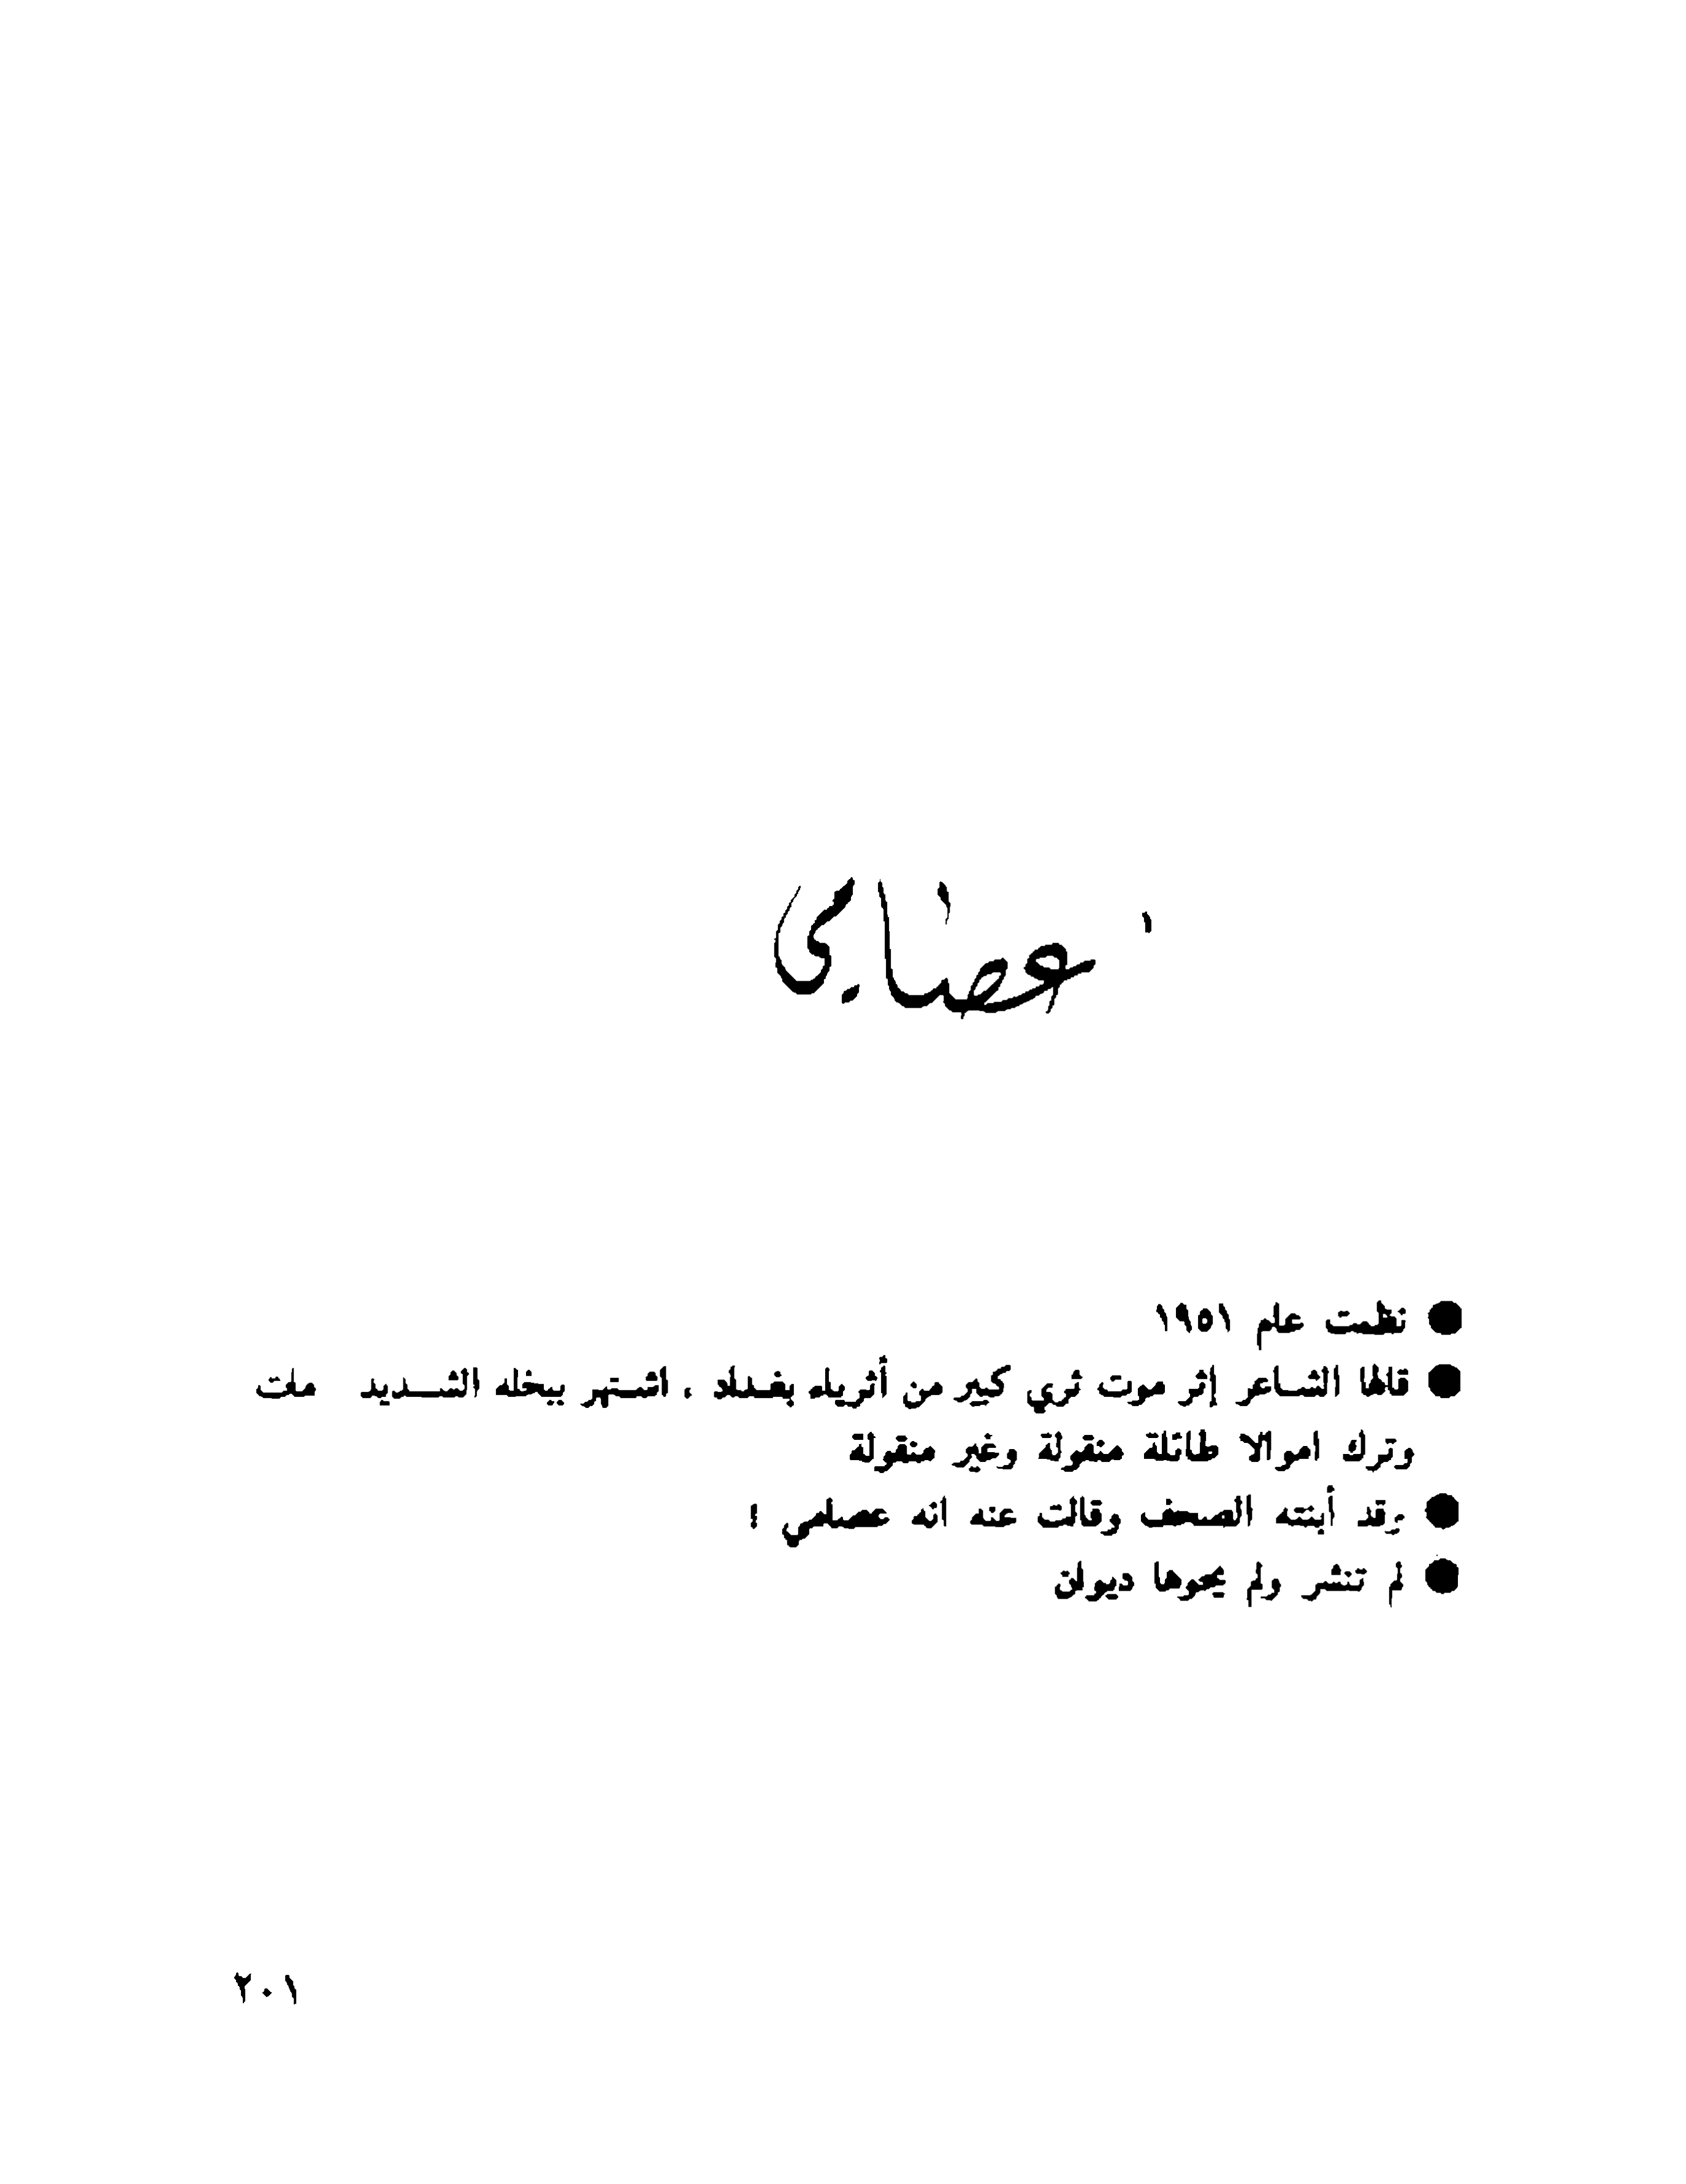 عصامي
● نظمت عام ١٩٥١
● قالها الشاعر إثر موت ثري كبير من أثرياء بغداد ، اشتهر ببخله الشديد مات
وترك اموالا طائلة منقولة وغير منقولة
● وقد أبنته الصحف وقالت عنه انه عصامي !
● لم تنشر ولم يحوها ديوان
٢٠١